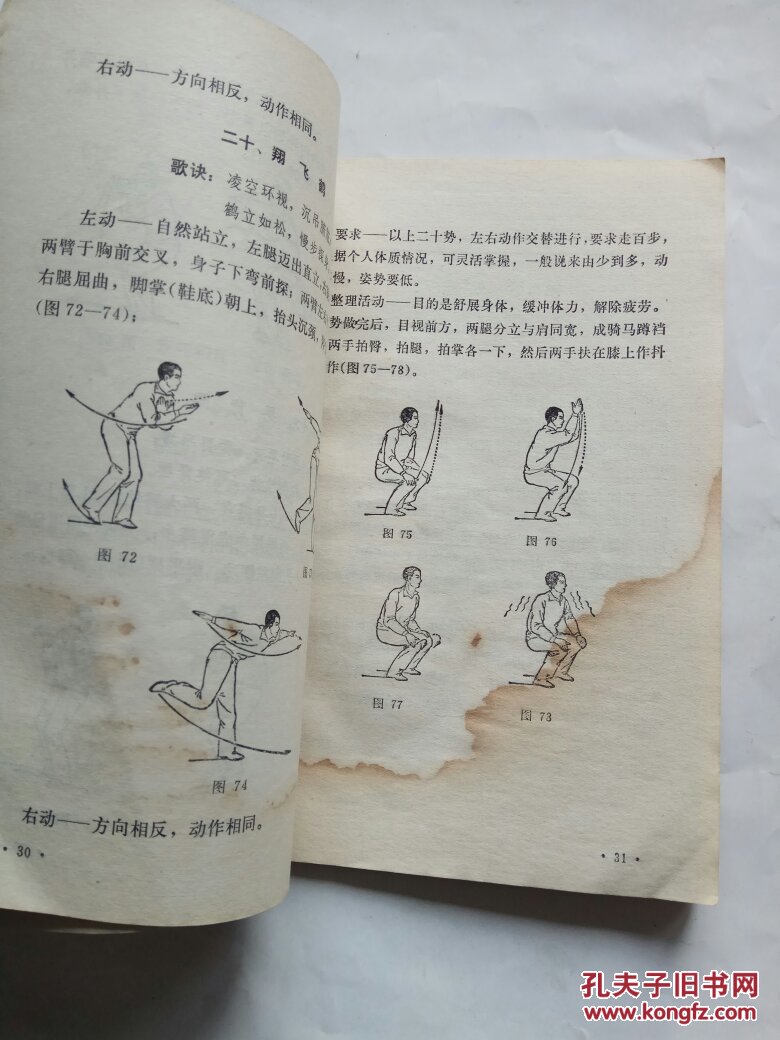 右动——方向相反，动作相同。
二十、翔飞鹤
歌诀：凌空环视，沉吊
鹤立如松，慢步
左动——自然站立，左腿迈出直立，
两臂于胸前交叉，身子下弯前探；两臂
右腿屈曲，脚掌(鞋底)朝上，抬头沉颈，
(图72—74)；
图 72
图 74
右动——方向相反，动作相同。
· 30 ·
要求——以上二十势，左右动作交替进行，要求走百步，
据个人体质情况，可灵活掌握，一般说来由少到多，动
慢，姿势要低。
整理活动——目的是舒展身体，缓冲体力，解除疲劳。
势做完后，目视前方，两腿分立与肩同宽，成骑马蹲裆
两手拍臂，拍腿，拍掌各一下，然后两手扶在膝上作抖
作(图75—78)。
图 75
图 76
图 77
图 73
· 31 ·
孔夫子旧书网
www.kongfz.com